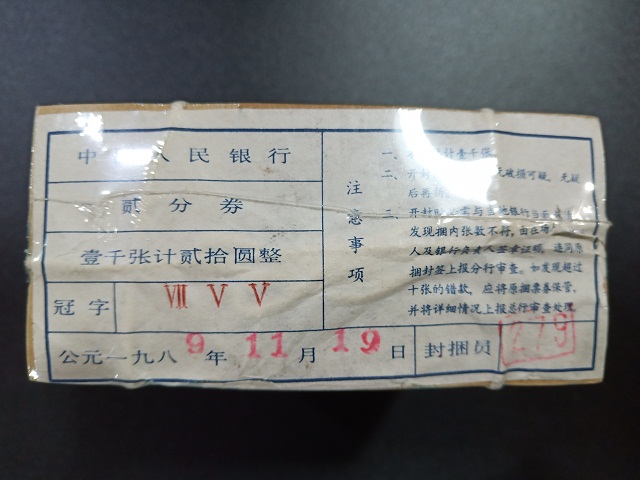 中 人民银行
贰分券
壹千张计贰拾圆整
冠字 Ⅶ Ⅴ Ⅴ
公元一九八9年11月19日 封捆员 279
注意事项
一、 计壹千张
二、开封 无破损可疑，无疑
后再拆
三、开封
发现捆内张数不符，由在场
人及银行 签章证明，连同原
捆封签上报分行审查。如发现超过
十张的错款，应将原捆票券保管，
并将详细情况上报总行审查处理